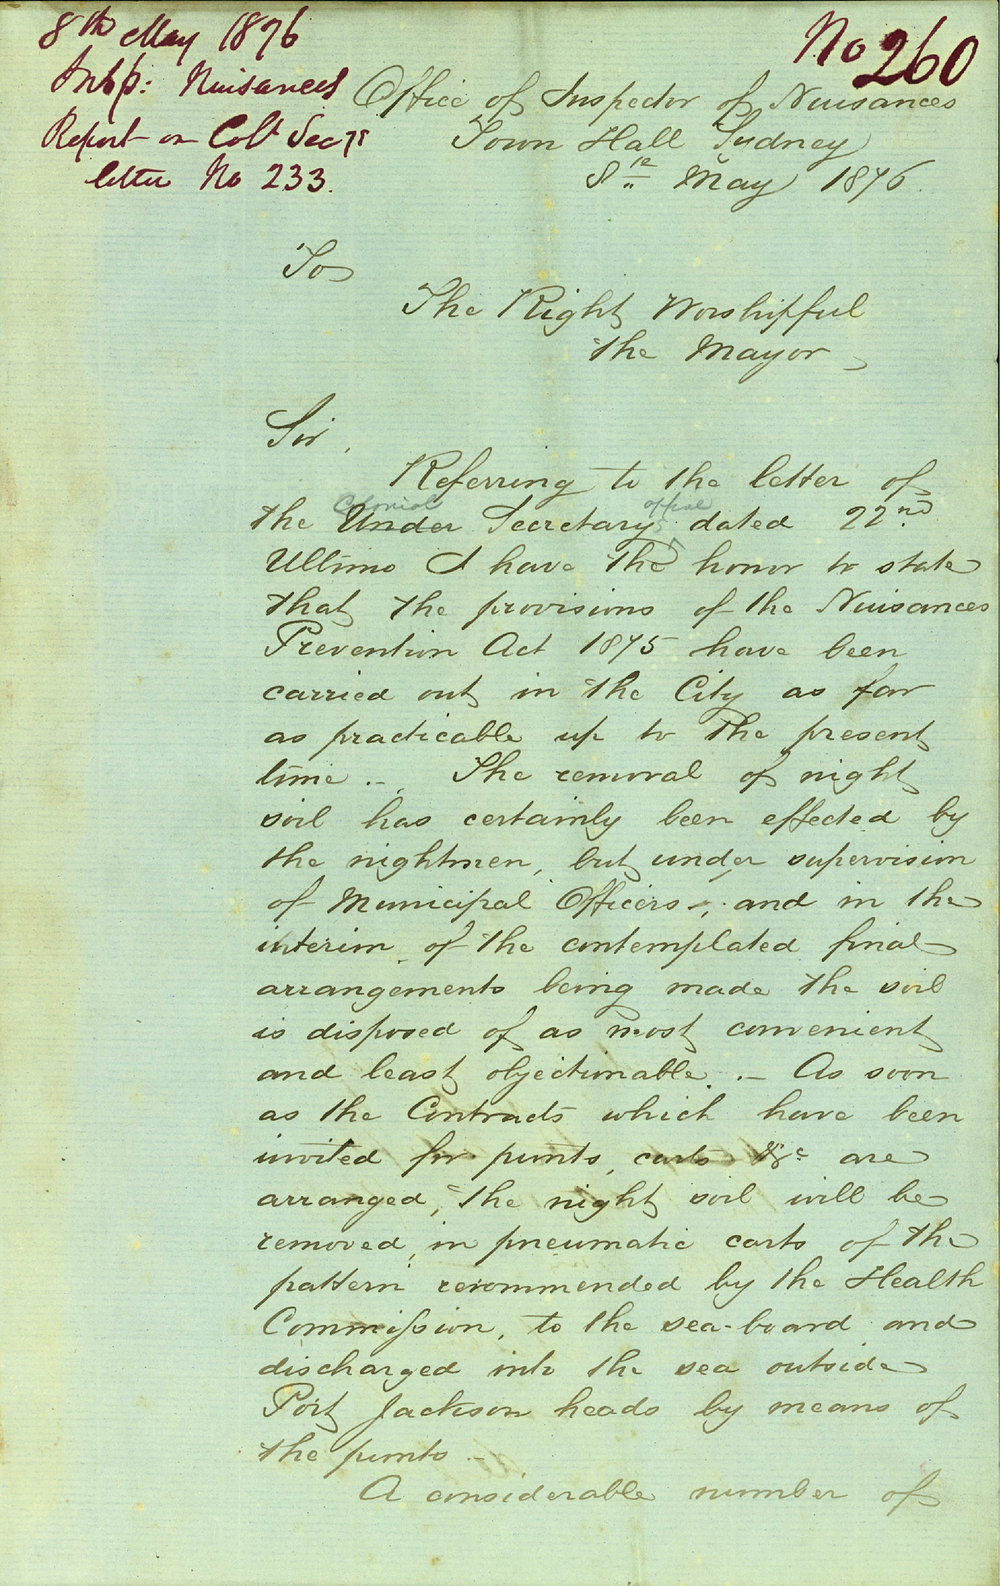 8th May 1876
Insp: Nuisances
Report on Col Secys
letter No 233.
No 260
Office of Inspector of Nuisances
Town Hall Sydney
8th May 1876.
To
The Right Worshipful
the Mayor
Sir,
Referring to the letter of
Colonial office
the Under Secretary dated 22nd
Ultimo I have the honor to state
that the provisions of the Nuisances
Prevention Act 1875 have been
carried out in the City as far
as practicable up to the present
time.- The removal of night
soil has certainly been effected by
the nightmen, but under supervision
of Municipal Officers-; and in the
interim of the contemplated final
arrangements being made the soil
is disposed of as most convenient
and least objectionable.- As soon
as the Contracts which have been
invited for punts, carts &c are
arranged, the night soil will be
removed in pneumatic carts of the
pattern recommended by the Health
Commission, to the sea-board and
discharged into the sea outside
Port Jackson heads by means of
the punts-
A considerable number of